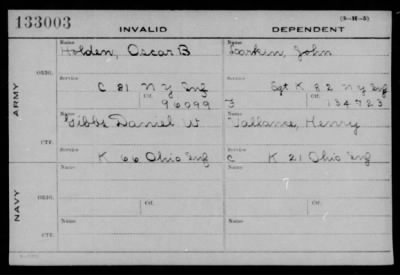 133003
INVALID
DEPENDENT
(3-H-5)
ARMY
ORIG.
Name
Holden, Oscar B
Name
Larkin, John
Service
C 81 N Y Inf
Service
Sgt K 82 N Y Inf
Ctf.
96099
Ctf.
134723
CTF.
Name
Gibbs Daniel W
Name
Vallance, Henry
Service
K 66 Ohio Inf
Service
C K 21 Ohio Inf
NAVY
ORIG.
Name
Name
Service
Ctf.
Service
Ctf.
CTF.
Name
Name